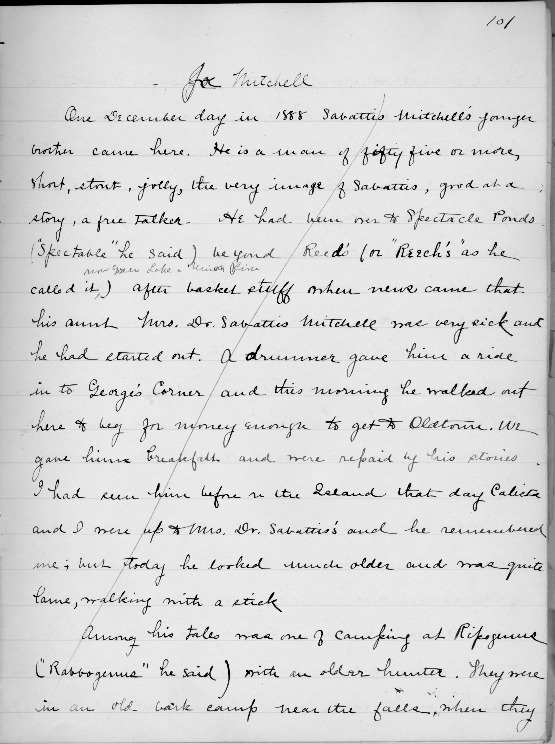 101
Joe Mitchell
One December day in 1888 Sabattis Mitchell's younger
brother came here. He is a man of fifty five or more,
short, stout, jolly, the very image of Sabattis, good at a
story, a free talker. He had been over to Spectacle Ponds
("Spectable" he said) beyond Reed's (or "Reech's" as he
now Green Lake &
called it,) after basket stuff when news came that
his aunt Mrs. Dr. Sabattis Mitchell was very sick and
he had started out. A drummer gave him a ride
in to George's Corner and this morning he walked out
here to beg for money enough to get to Oldtown. We
gave him breakfast and were repaid by his stories.
I had seen him before on the Island that day
and I were up to Mrs. Dr. Sabattis's and he remembered
me; but today he looked much older and was quite
lame, walking with a stick
Among his tales was one of camping at Ripogenus
("Rabbogenus" he said) with an older hunter. They were
in an old bark camp near the falls, when they